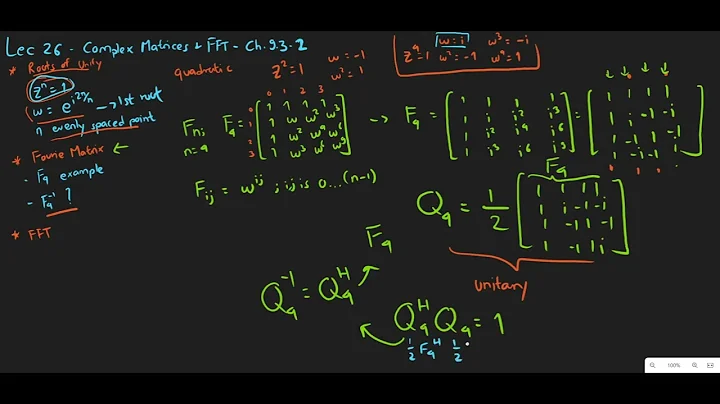 Lec 26 - Complex Matrices & FFT - Ch. 9.3-2
* Roots of Unity
zⁿ = 1
w = e^{i2π/n} → 1st root
n evenly spaced point
* Fourie Matrix ←
- F₄ example
- F₄⁻¹ ?
* FFT
quadratic z² = 1 w = -1
w² = 1
w = i w³ = -i
z⁴ = 1 w² = -1 w⁴ = 1
0 1 2 3
Fₙ; F₄ =
n = 4
0 1 1 1 1
1 1 w w² w³
2 1 w² w⁴ w⁶
3 1 w³ w⁶ w⁹
→ F₄ =
1 1 1 1
1 i i² i³
1 i² i⁴ i⁶
1 i³ i⁶ i⁹
=
1 1 1 1
1 i -1 -i
1 -1 1 -1
1 -i -1 i
F_{ij} = w^{ij} ; i,j is 0...(n-1)
F₄
Q₄ = 1/2
1 1 1 1
1 i -1 -i
1 -1 1 -1
1 -i -1 i
unitary
F₄
Q₄⁻¹ = Q₄ᴴ
Q₄ᴴ Q₄ = 1
1/2 F₄ᴴ 1/2
100%